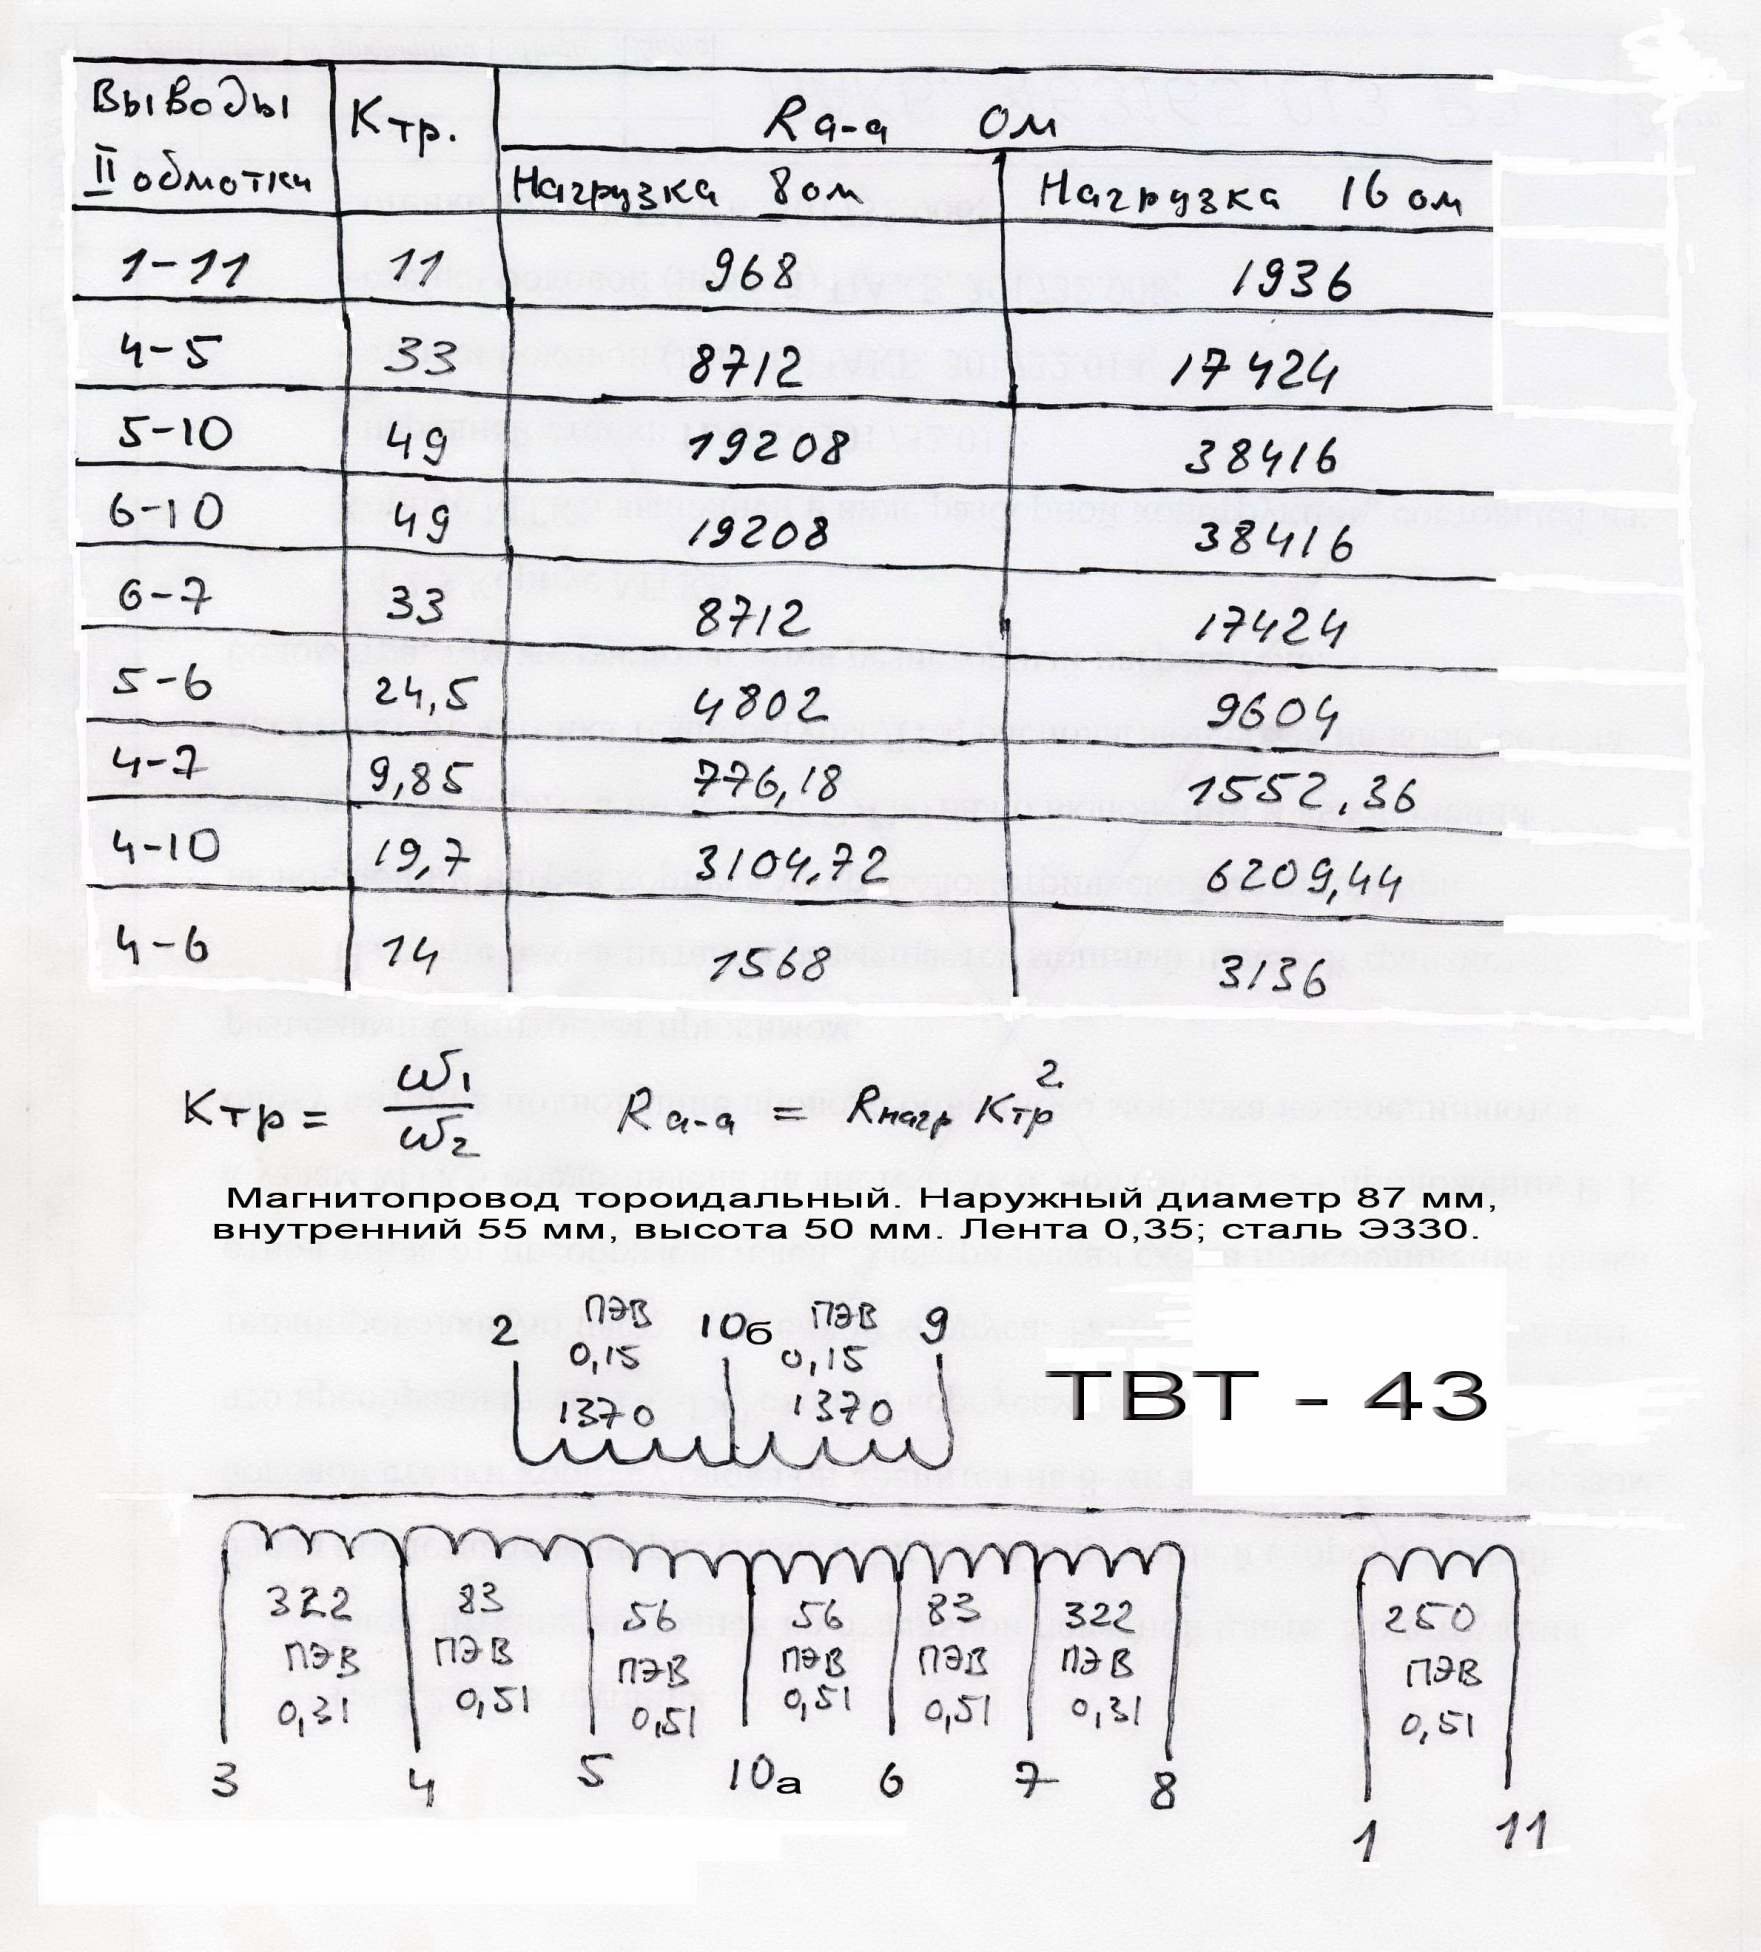 Выводы II обмотки Ктр. Ra-a Ом
Нагрузка 8 ом Нагрузка 16 ом
1-11 11 968 1936
4-5 33 8712 17424
5-10 49 19208 38416
6-10 49 19208 38416
6-7 33 8712 17424
5-6 24,5 4802 9604
4-7 9,85 776,18 1552.36
4-10 19,7 3104,72 6209,44
4-6 14 1568 3136
Ктр = ω1/ω2 Ra-a = Rнагр Ктр²
Магнитопровод тороидальный. Наружный диаметр 87 мм,
внутренний 55 мм, высота 50 мм. Лента 0,35; сталь Э330.
2 ПЭВ 10б ПЭВ 9
0,15 0,15
1370 1370
ТВТ - 43
322 83 56 56 83 322 250
ПЭВ ПЭВ ПЭВ ПЭВ ПЭВ ПЭВ ПЭВ
0,31 0,51 0,51 0,51 0,51 0,31 0,51
3 4 5 10а 6 7 8
1 11